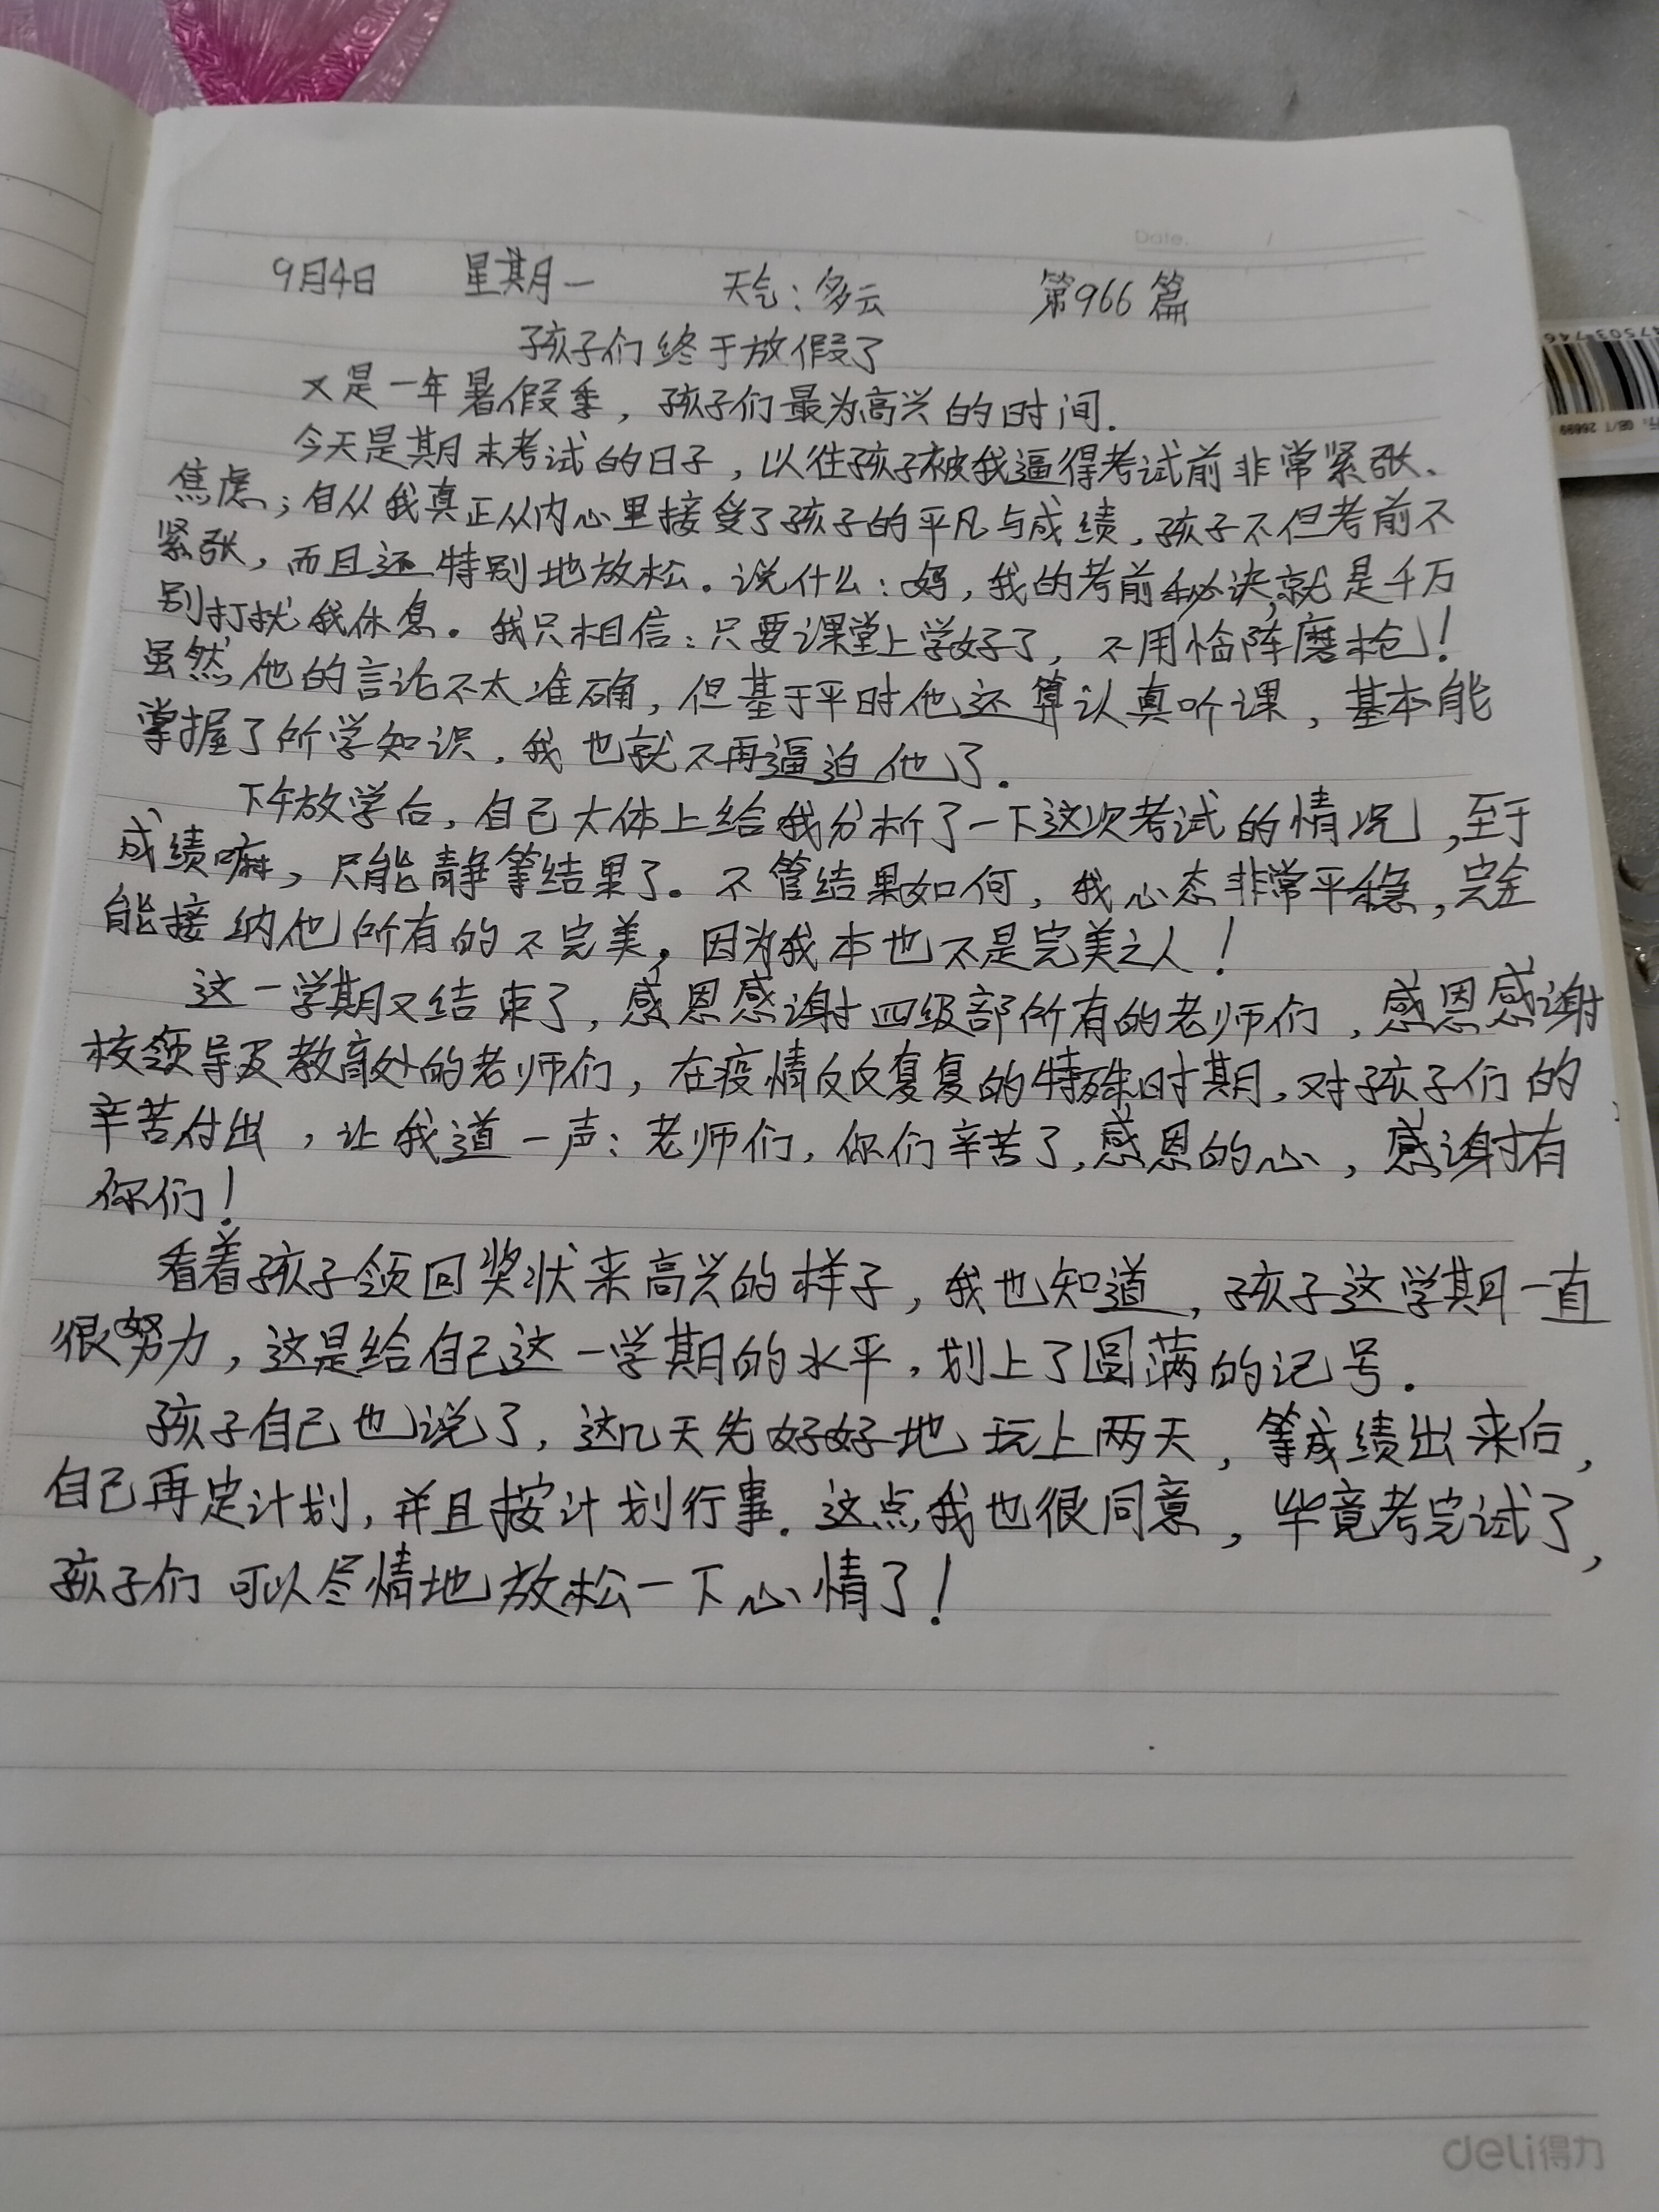 Date. /
9月4日 星期一 天气:多云 第966篇
孩子们终于放假了
又是一年暑假季,孩子们最为高兴的时间.
今天是期末考试的日子,以往孩子被我逼得考试前非常紧张、
焦虑;自从我真正从内心里接受了孩子的平凡与成绩,孩子不但考前不
紧张,而且还特别地放松。说什么:妈,我的考前秘诀,就是千万
别打扰我休息。我只相信:只要课堂上学好了,不用临阵磨枪!
虽然他的言论不太准确,但基于平时他还算认真听课,基本能
掌握了所学知识,我也就不再逼迫他了.
下午放学后,自己大体上给我分析了一下这次考试的情况,至于
成绩嘛,只能静等结果了。不管结果如何,我心态非常平稳,完全
能接纳他所有的不完美,因为我本也不是完美之人!
这一学期又结束了,感恩感谢四级部所有的老师们,感恩感谢
校领导及教育处的老师们,在疫情反反复复的特殊时期,对孩子们的
辛苦付出,让我道一声:老师们,你们辛苦了,感恩的心,感谢有
你们!
看着孩子领回奖状来高兴的样子,我也知道,孩子这学期一直
很努力,这是给自己这一学期的水平,划上了圆满的记号.
孩子自己也说了,这几天先好好地玩上两天,等成绩出来后,
自己再定计划,并且按计划行事.这点我也很同意,毕竟考完试了,
孩子们可以尽情地放松一下心情了!
deli得力